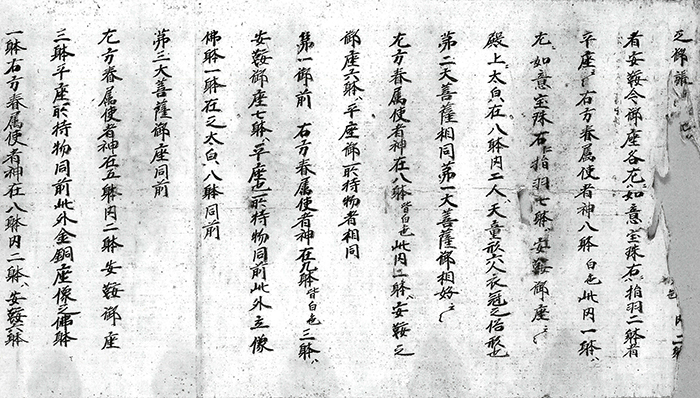 之御
者安鞍令御座各左如意宝珠右指羽二躰者
平座〻右方眷属使者神八躰白色此内一躰
左如意宝珠右指羽七躰安鞍御座〻
殿上太白在八躰内二人天童形六人衣冠之俗形也
第二大菩薩相同第一大菩薩御相好〻
左方眷属使者神在八躰皆白色此内二躰安鞍之
御座六躰平座御於持物者相同
第一御前 右方眷属使者神在九躰皆白色三躰
安鞍御座七躰平座也於持物同前此外立像
佛躰一躰在之太白八躰同前
第三大菩薩御座同前
左方眷属使者神在五躰内二躰安鞍御座
三躰平座於持物同前此外金銅座像之佛躰
一躰右方眷属使者神在八躰内二躰安鞍六躰